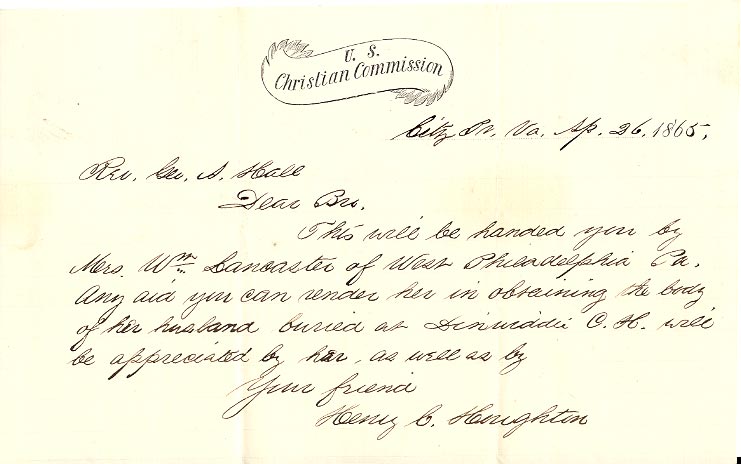 U. S.
Christian Commission
City Pt. Va. Ap. 26. 1865.
Rev. Geo. A. Hall
Dear Bro.
This will be handed you by
Mrs. Wm Lancaster of West Philadelphia Pa.
Any aid you can render her in obtaining the body
of her husband buried at Dinwiddie C. H. will
be appreciated by her, as well as by
Your friend
Henry C. Houghton